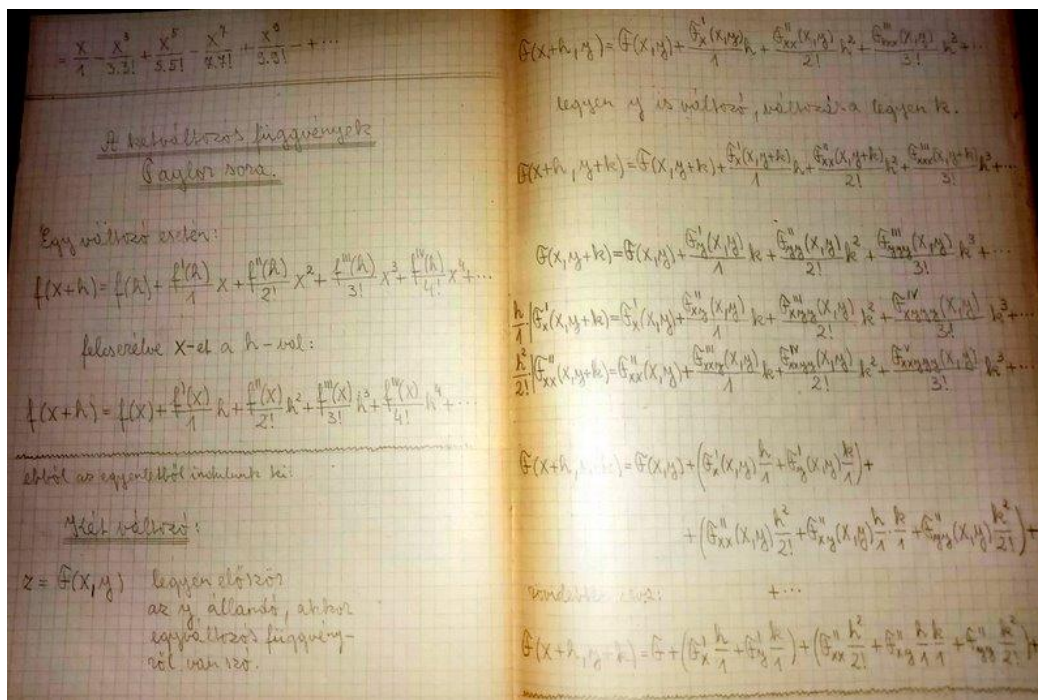 = x/1 - x³/3·3! + x⁵/5·5! - x⁷/7·7! + x⁹/9·9! - + ⋯
A kétváltozós függvények
Taylor sora.
Egy változó esetén:
f(x+h) = f(h) + f'(h)/1 x + f''(h)/2! x² + f'''(h)/3! x³ + f^IV(h)/4! x⁴ + ⋯
felcserélve x-et a h-val:
f(x+h) = f(x) + f'(x)/1 h + f''(x)/2! h² + f'''(x)/3! h³ + f^IV(x)/4! h⁴ + ⋯
ebből az egyenletből indulunk ki:
Két változó:
z = F(x,y) legyen először
az y állandó, akkor
egyváltozós függvény-
ről van szó.
F(x+h,y) = F(x,y) + F'x(x,y)/1 h + F''xx(x,y)/2! h² + F'''xxx(x,y)/3! h³ + ⋯
legyen y is változó, változása legyen k.
F(x+h,y+k) = F(x,y+k) + F'x(x,y+k)/1 h + F''xx(x,y+k)/2! h² + F'''xxx(x,y+k)/3! h³ + ⋯
F(x,y+k) = F(x,y) + F'y(x,y)/1 k + F''yy(x,y)/2! k² + F'''yyy(x,y)/3! k³ + ⋯
h/1 | F'x(x,y+k) = F'x(x,y) + F''xy(x,y)/1 k + F'''xyy(x,y)/2! k² + F^IV xyyy(x,y)/3! k³ + ⋯
h²/2! | F''xx(x,y+k) = F''xx(x,y) + F'''xxy(x,y)/1 k + F^IV xxyy(x,y)/2! k² + F^V xxyyy(x,y)/3! k³ + ⋯
F(x+h,y+k) = F(x,y) + (F'x(x,y) h/1 + F'y(x,y) k/1) +
+ (F''xx(x,y) h²/2! + F''xy(x,y) h/1 · k/1 + F''yy(x,y) k²/2!) +
+ ⋯
F(x+h,y+k) = F + (F'x h/1 + F'y k/1) + (F''xx h²/2! + F''xy h/1 k/1 + F''yy k²/2!) +